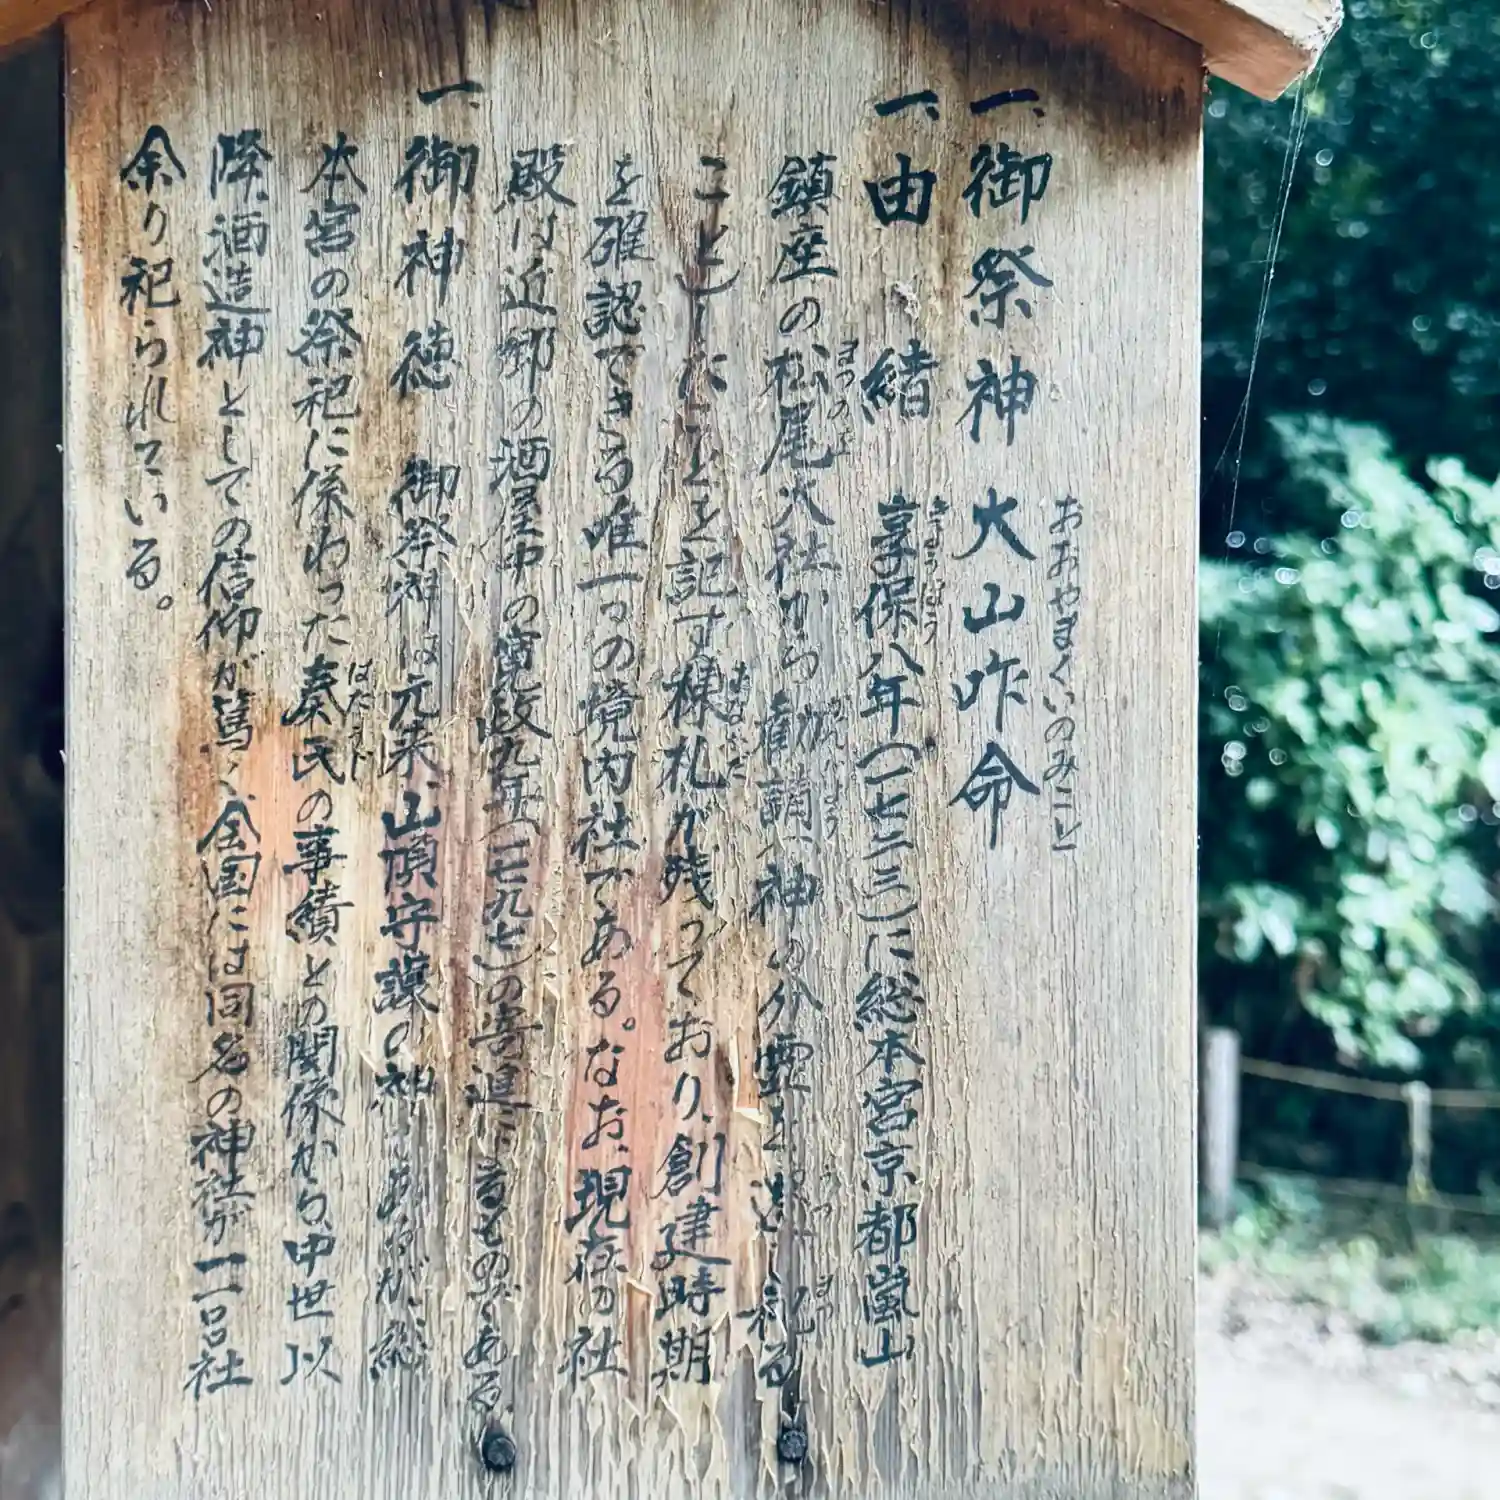 一、御祭神 大山咋命
おおやまくいのみこと
一、由緒 享保八年(一七二三)に総本宮京都嵐山
きょうほう
鎮座の松尾大社から勧請、神の分霊を遷し祀る
まつのお かんじょう うつ まつ
ことしたことを記す棟札が残っており、創建時期
むなふだ
を確認できる唯一つの境内社である。なお、現在の社
殿は近郷の酒屋中の寛政九年(一七九七)の寄進によるものである
一、御神徳 御祭神は元来、山頂守護の神であるが、総
本宮の祭祀に係わった秦氏の事績との関係から、中世以
はたうじ
降、酒造神としての信仰が篤く、全国には同名の神社が一一〇社
余り祀られている。